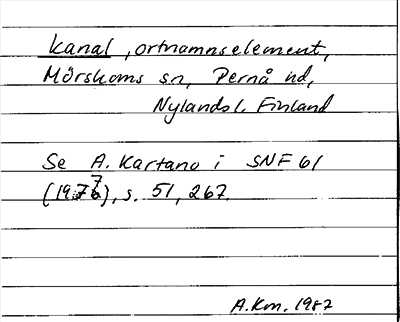 kanal, ortnamnselement,
Mörskoms sn, Pernå hd,
Nylands l. Finland
Se A. Kartano i SNF 61
(1977), s. 51, 267.
A.Km. 1987